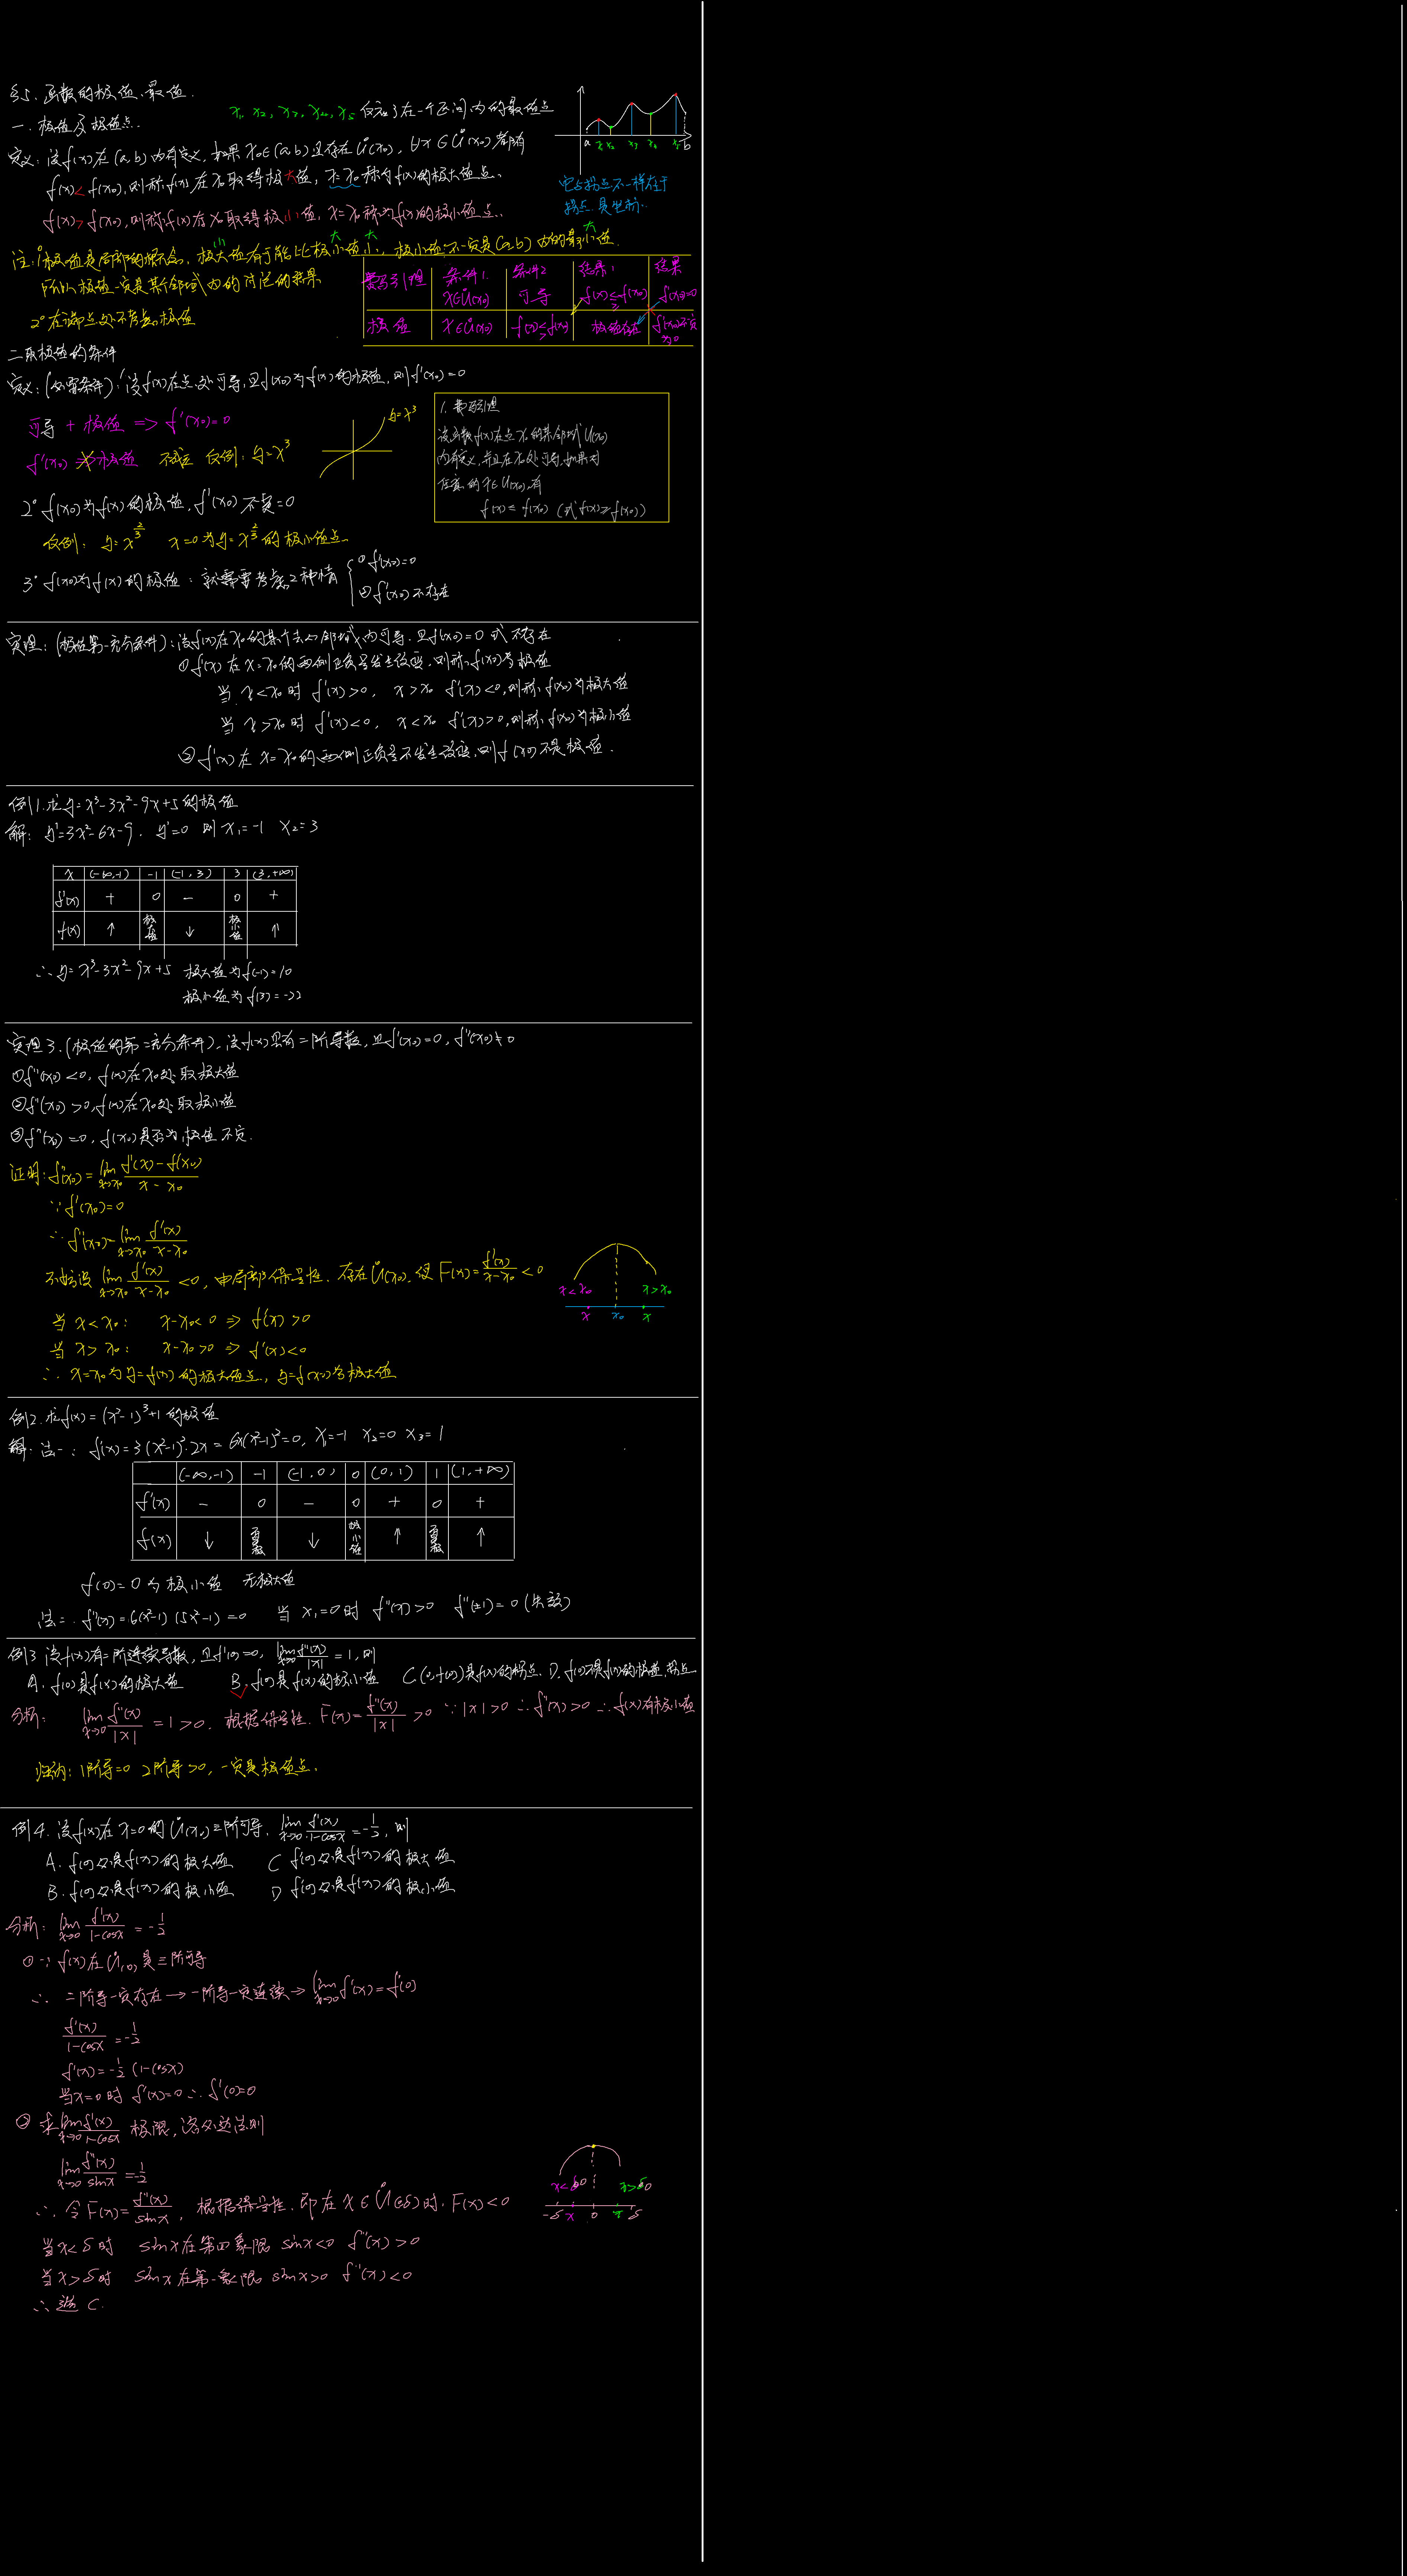 §5. 函数的极值、最值.
一. 极值及极值点.
x₁, x₂, x₃, x₄, x₅ 仅之在一个区间内的最值点
a x₁ x₂ x₃ x₄ x₅ b
定义: 设f(x)在(a,b)内有定义, 如果x₀∈(a,b)且存在Ů(x₀), ∀x∈Ů(x₀)都有
f(x)<f(x₀), 则称f(x)在x₀取得极大值, x=x₀称为f(x)的极大值点.
f(x)>f(x₀), 则称f(x)在x₀取得极小值, x=x₀称为f(x)的极小值点.
它与拐点不一样在于
拐点是坐标.
小 大 大 大
注: 1°极值是局部的概念, 极大值有可能比极小值小, 极小值不一定是(a,b)内的最小值.
所以极值一定是某个邻域内的讨论的结果
2°在端点处不考虑极值
费马引理 条件1. x∈Ů(x₀) 条件2 可导 结果1 f(x)≤f(x₀) ≥ 结果 f'(x₀)=0
极值 x∈Ů(x₀) f(x)<f(x₀) > 极值存在 f'(x₀)不定为0
二. 取极值的条件
定义: (必要条件): 1°设f(x)在点x₀处可导, 且f(x₀)为f(x)的极值, 则f'(x₀)=0
可导 + 极值 => f'(x₀)=0
f'(x₀) ≠> 极值 不成立 反例: y=x³
y=x³
1. 费马引理
设函数f(x)在点x₀的某邻域U(x₀)
内有定义, 并且在x₀处可导, 如果对
任意的x∈U(x₀), 有
f(x)≤f(x₀) (或f(x)≥f(x₀))
2° f(x₀)为f(x)的极值, f'(x₀)不定=0
反例: y=x^(2/3) x=0为y=x^(2/3)的极小值点.
3° f(x₀)为f(x)的极值: 就需要考虑2种情 { ① f'(x₀)=0
② f'(x₀)不存在
定理: (极值第一充分条件): 设f(x)在x₀的某个去心邻域内可导, 且f'(x₀)=0或不存在
① f'(x)在x=x₀的两侧正负号发生改变, 则称f(x₀)为极值
当x<x₀时 f'(x)>0, x>x₀ f'(x)<0, 则称f(x₀)为极大值
当x>x₀时 f'(x)<0, x<x₀ f'(x)>0, 则称f(x₀)为极小值
② f'(x)在x=x₀的两侧正负号不发生改变, 则f(x₀)不是极值.
例1. 求y=x³-3x²-9x+5的极值
解: y'=3x²-6x-9. y'=0 则 x₁=-1 x₂=3
x (-∞,-1) -1 (-1,3) 3 (3,+∞)
f'(x) + 0 - 0 +
f(x) ↑ 极大值 ↓ 极小值 ↑
∴ y=x³-3x²-9x+5 极大值为f(-1)=10
极小值为f(3)=-22
定理3. (极值的第二充分条件). 设f(x)具有二阶导数, 且f'(x₀)=0, f''(x₀)≠0
① f''(x₀)<0, f(x)在x₀处取极大值
② f''(x₀)>0, f(x)在x₀处取极小值
③ f''(x₀)=0, f(x₀)是否为极值不定.
证明: f''(x₀)=lim x→x₀ (f'(x)-f'(x₀))/(x-x₀)
∵ f'(x₀)=0
∴ f''(x₀)=lim x→x₀ f'(x)/(x-x₀)
不妨设 lim x→x₀ f'(x)/(x-x₀) <0, 由局部保号性. 存在Ů(x₀), 使F(x)=f'(x)/(x-x₀)<0
x<x₀ x>x₀
x x₀ x
当x<x₀: x-x₀<0 => f'(x)>0
当x>x₀: x-x₀>0 => f'(x)<0
∴ x=x₀为y=f(x)的极大值点, y=f(x₀)为极大值
例2. 求f(x)=(x²-1)³+1的极值
解. 法一: f'(x)=3(x²-1)²·2x=6x(x²-1)²=0, x₁=-1 x₂=0 x₃=1
(-∞,-1) -1 (-1,0) 0 (0,1) 1 (1,+∞)
f'(x) - 0 - 0 + 0 +
f(x) ↓ 无极 ↓ 极小值 ↑ 无极 ↑
f(0)=0为极小值 无极大值
法二. f''(x)=6(x²-1)(5x²-1)=0 当x₁=0时 f''(x)>0 f''(±1)=0 (失效)
例3 设f(x)有二阶连续导数, 且f'(0)=0, lim x→0 f''(x)/|x|=1, 则
A. f(0)是f(x)的极大值 B. f(0)是f(x)的极小值 C. (0,f(0))是f(x)的拐点. D. f(0)不是f(x)的极值, 拐点
分析: lim x→0 f''(x)/|x|=1>0. 根据保号性. F(x)=f''(x)/|x|>0 ∵|x|>0 ∴f''(x)>0 ∴f(x)有极小值
归纳: 1阶导=0 2阶导>0, 一定是极值点.
例4. 设f(x)在x=0的Ů(x₀)二阶可导. lim x→0 f'(x)/(1-cosx)=-1/2, 则
A. f(0)必是f(x)的极大值 C f(0)必是f(x)的极大值
B. f(0)必是f(x)的极小值 D f(0)必是f(x)的极小值
分析: lim x→0 f'(x)/(1-cosx)=-1/2
① ∵ f(x)在Ů(0)是二阶可导
∴ 二阶导一定存在→一阶导一定连续→lim x→0 f'(x)=f'(0)
f'(x)/(1-cosx)=-1/2
f'(x)=-1/2(1-cosx)
当x=0时 f'(x)=0 ∴ f'(0)=0
② 求lim x→0 f'(x)/(1-cosx) 极限, 洛必达法则
lim x→0 f''(x)/sinx=-1/2
∴ 令F(x)=f''(x)/sinx, 根据保号性. 即在x∈Ů(0,δ)时, F(x)<0
x<0 x>0
-δ x 0 x δ
当x<δ时 sinx在第四象限 sinx<0 f''(x)>0
当x>δ时 sinx在第一象限 sinx>0 f''(x)<0
∴ 选 C.